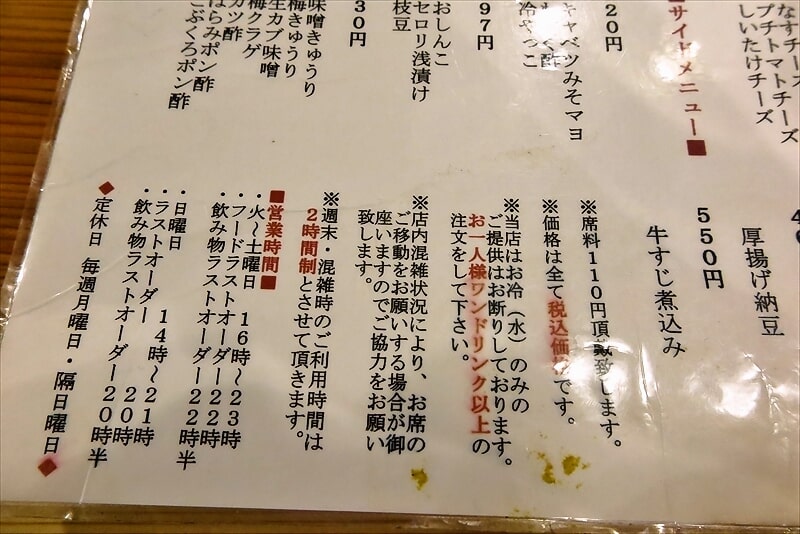 なすチーズ
プチトマトチーズ
しいたけチーズ
■サイドメニュー■
20円
キャベツみそマヨ
冷やっこ
97円
おしんこ
セロリ浅漬け
枝豆
30円
味噌きゅうり
梅きゅうり
生カブ味噌
梅クラゲ
ガツ酢
はらみポン酢
こぶくろポン酢
厚揚げ納豆
550円
牛すじ煮込み
※席料110円頂戴致します。
※価格は全て税込価格です。
※当店はお冷（水）のみの
ご提供はお断りしております。
お一人様ワンドリンク以上の
注文をして下さい。
※店内混雑状況により、お席の
ご移動をお願いする場合が御
座いますのでご協力をお願い
致します。
※週末・混雑時のご利用時間は
2時間制とさせて頂きます。
■営業時間■
・火～土曜日 16時～23時
・フードラストオーダー22時
・飲み物ラストオーダー22時半
・日曜日 14時～21時
・ラストオーダー 20時
・飲み物ラストオーダー20時半
◆定休日 毎週月曜日・隔日曜日◆